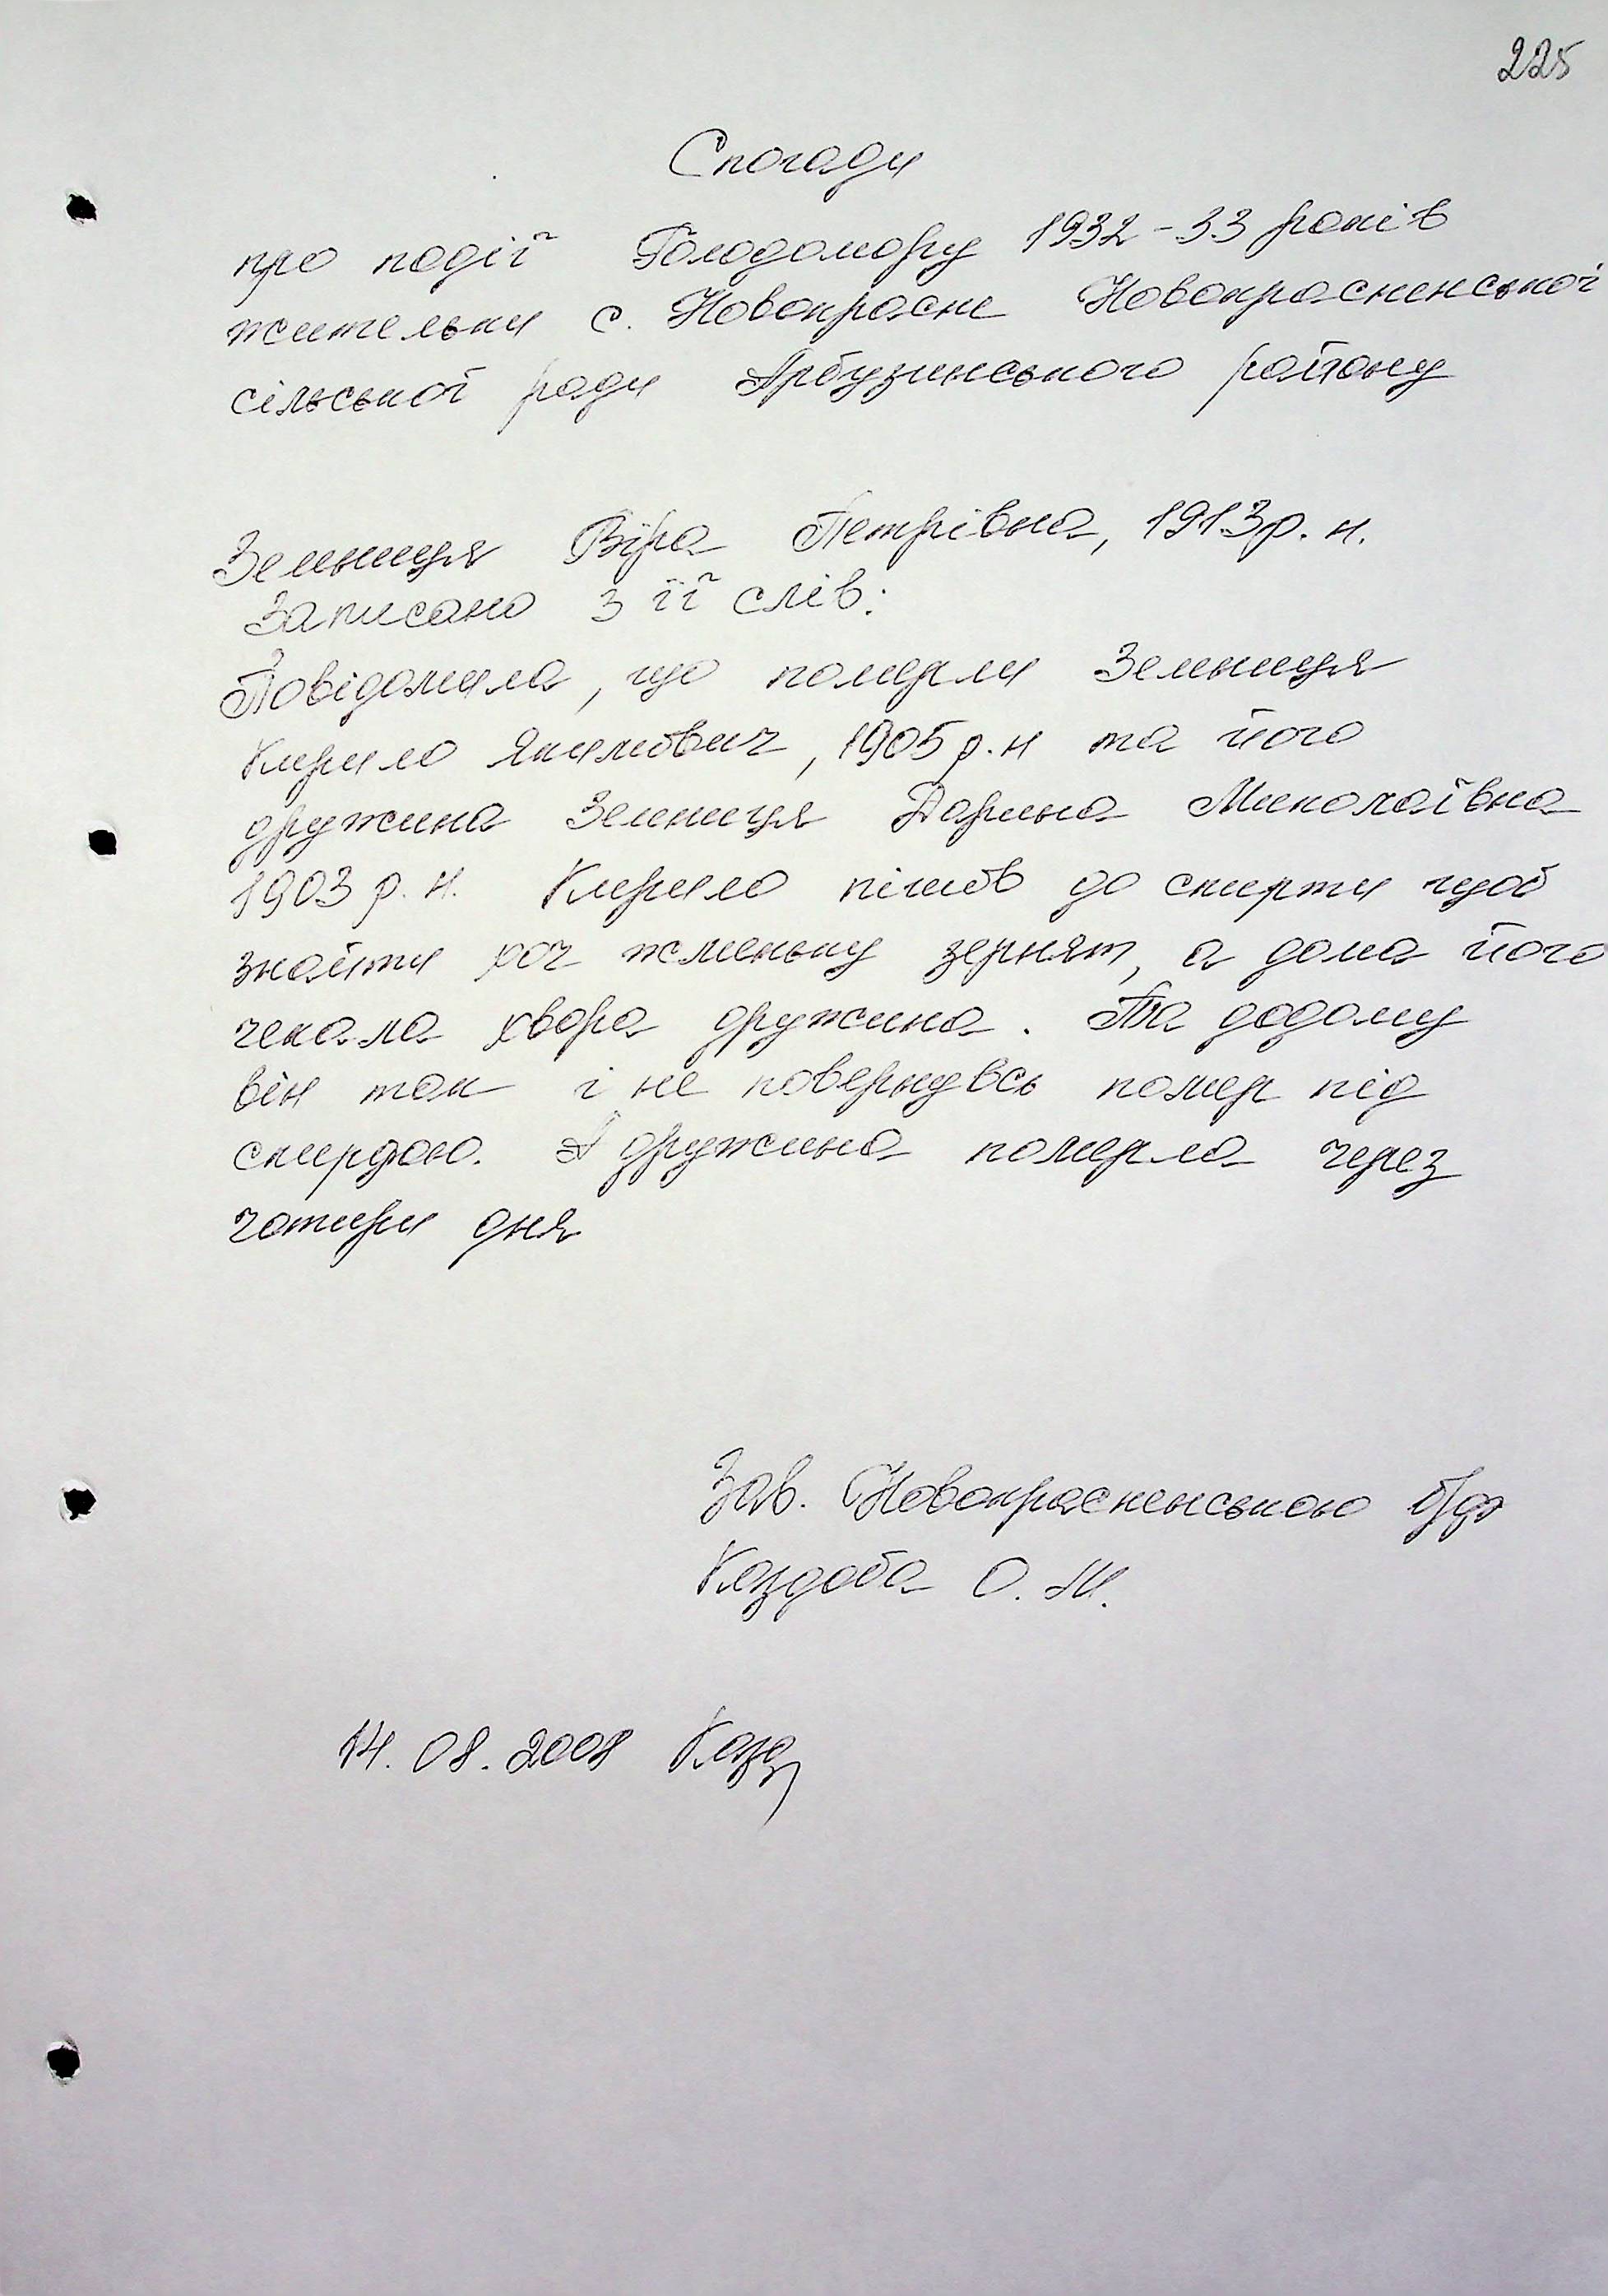 225
Спогади
про події Голодомору 1932-33 років
жительки с. Новокрасне Новокрасненської
сільської ради Арбузинського району
Земниця Віра Петрівна, 1913 р. н.
Записано з її слів:
Повідомила, що померли Земниця
Кирило Якимович, 1905 р. н та його
дружина Земниця Дарина Миколаївна
1903 р. н. Кирило пішов до скирти щоб
знайти хоч жменьку зернят, а дома його
чекала хвора дружина. Та додому
він так і не повернувсь помер під
скирдою. А дружина померла через
чотири дня
Зав. Новокрасненською
Каздоба О. М.
14. 08. 2008 Казд